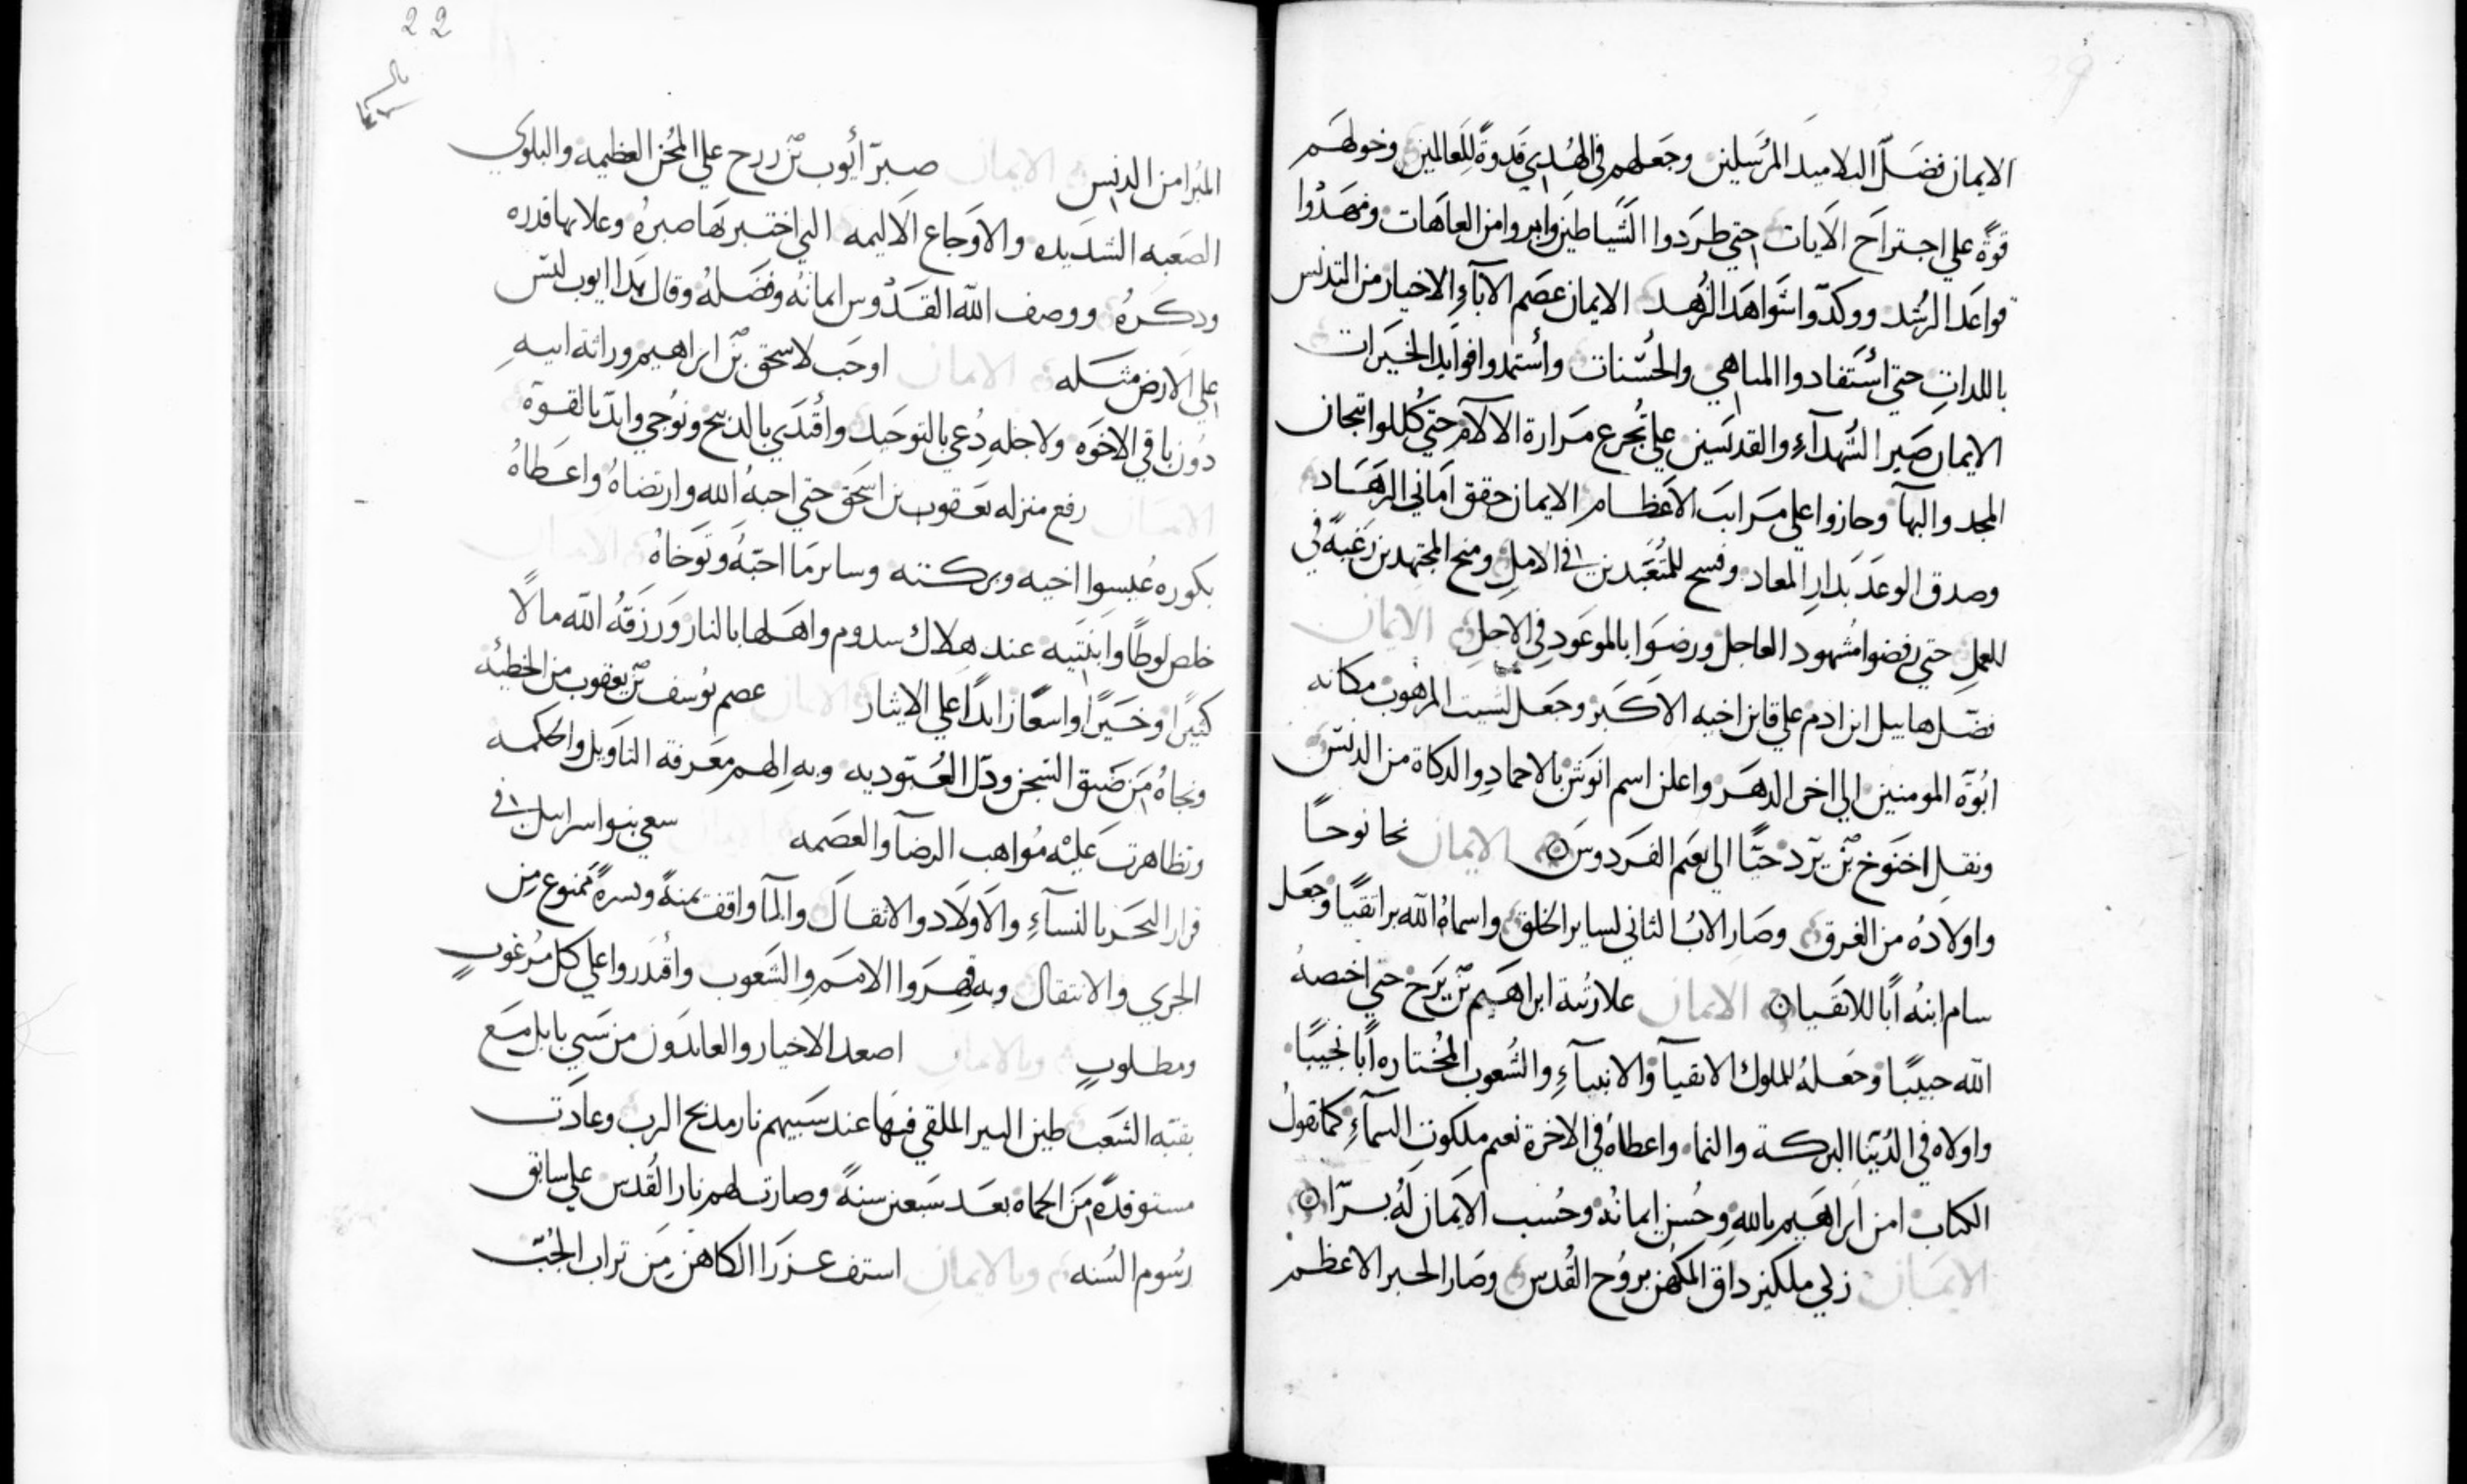 الايمان فضّل التلاميد المرسلين وجعلهم في الهُدي قدوةً للعالمين وخولهم
قوةً علي اجتراح الايات حتي طردوا الشياطين وابروا من العاهات ومهدوا
قواعد الرشد ووكدّوا شواهد الزهد الايمان عصم الآباء الاخيار من التدنس
باللدات حتي استفادوا المباهي والحسنات واستمدوا فوايد الخيرات
الايمان صبر الشهدآء والقديسين علي تجرع مرارة الالآم حتي كللوا تيجان
المجد والبهآ وحازوا علي مراتب الاعظام الايمان حقق اماني الزهاد
وصدق الوعد بدار المعاد وفسح للمتعبدين في الامل ومنح المجتهدين رغبةً في
للعمل حتي رفضوا مشهود العاجل ورضوا بالموعود في الاجل الايمان
فضّل هابيل ابن ادم علي قاين اخيه الاكبر وجعل لشيت المرهوب مكانه
ابُوّة المومنين الي اخر الدهر واعلن اسم انوش بالاحماد والدكاة من الدنس
ونقل اخنوخ بن يرد حيًّا الي نعم الفردوس الايمان نجا نوحًا
واولاده من الغرق وصار الابُ الثاني لساير الخلق واسماهُ الله برا تقيًا وجعل
سام ابنه أبًا للاتقيا الايمان علا رتبة ابراهيم بن يرخ حتي اخصهُ
الله حبيبًا وجعلهُ للملوك الاتقيآ والانبيآء والشعوب المختاره أبًا نجيبًا
واولاه في الدُنيا البركة والنما واعطاهُ في الاخرة نعيم ملكوت السمآء كما تقول
الكتاب امن ابراهيم بالله وحسن ايمانُه وحُسب الايمان لهُ برّا
الايمان زكي ملكيزداق المكهن بروح القدس وصار الحبر الاعظم
22
المبرا من الدنس الايمان صبرّ أيوب بن زرح علي المحن العظيمه والبلوي
الصعبه الشديده والاوجاع الاليمه التي اختبر بها صبرهُ وعلا بها قدره
ودكرهُ ووصف الله القدّوس ايمانه وفضلهُ وقال هدا ايوب ليس
علي الارض مثله الايمان اوجب لاسحق بن ابراهيم وراثة ابيه
دُون باقي الاخوه ولاجله دُعي بالتوحيد وأفتدي بالدبيح ونوجي وايدّ بالقوّة
الايمان رفع منزله يعقوب بن اسحق حتي احبهُ الله وارتضاهُ واعطاهُ
بكوره عيسوا اخيه وبركته وساير ما احبّهُ وتوخاهُ الايمان
خلص لوطًا وابنتيه عند هلاك سدوم واهلها بالنار ورزقهُ الله مالًا
كثيرًا وخيرًا واسعًا زايدًا علي الايثار الايمان عصم يُوسف بن يعقوب من الخطيّه
ونجاهُ من ضيق السجن ودّل العُبّوديه وبه الهم معرفة التاويل والحكمه
وتظاهرت عليه مُواهب الرضآ والعصمه سعي بنوا اسراييل في
قرار البحر بالنسآء والاولاد والاثقال والمآ واقف يمنةً ويسرةً ممنوع من
الجري والانتقال وبه قهروا الامم والشعوب واقدروا علي كل مرغوبٍ
ومطلوبٍ وبالايمان اصعد الاخيار والعابدون من سبي بابل مع
بقيّه الشعب طين البير الملقي فيها عند سبيهم نار مدبح الرب وعادت
مستوقدةً من الحماة بعد سبعين سنةً وصارت لهم نار القدس علي سابق
رسُوم السُنه وبالايمان استف عزرا الكاهن من تراب الجُبّ